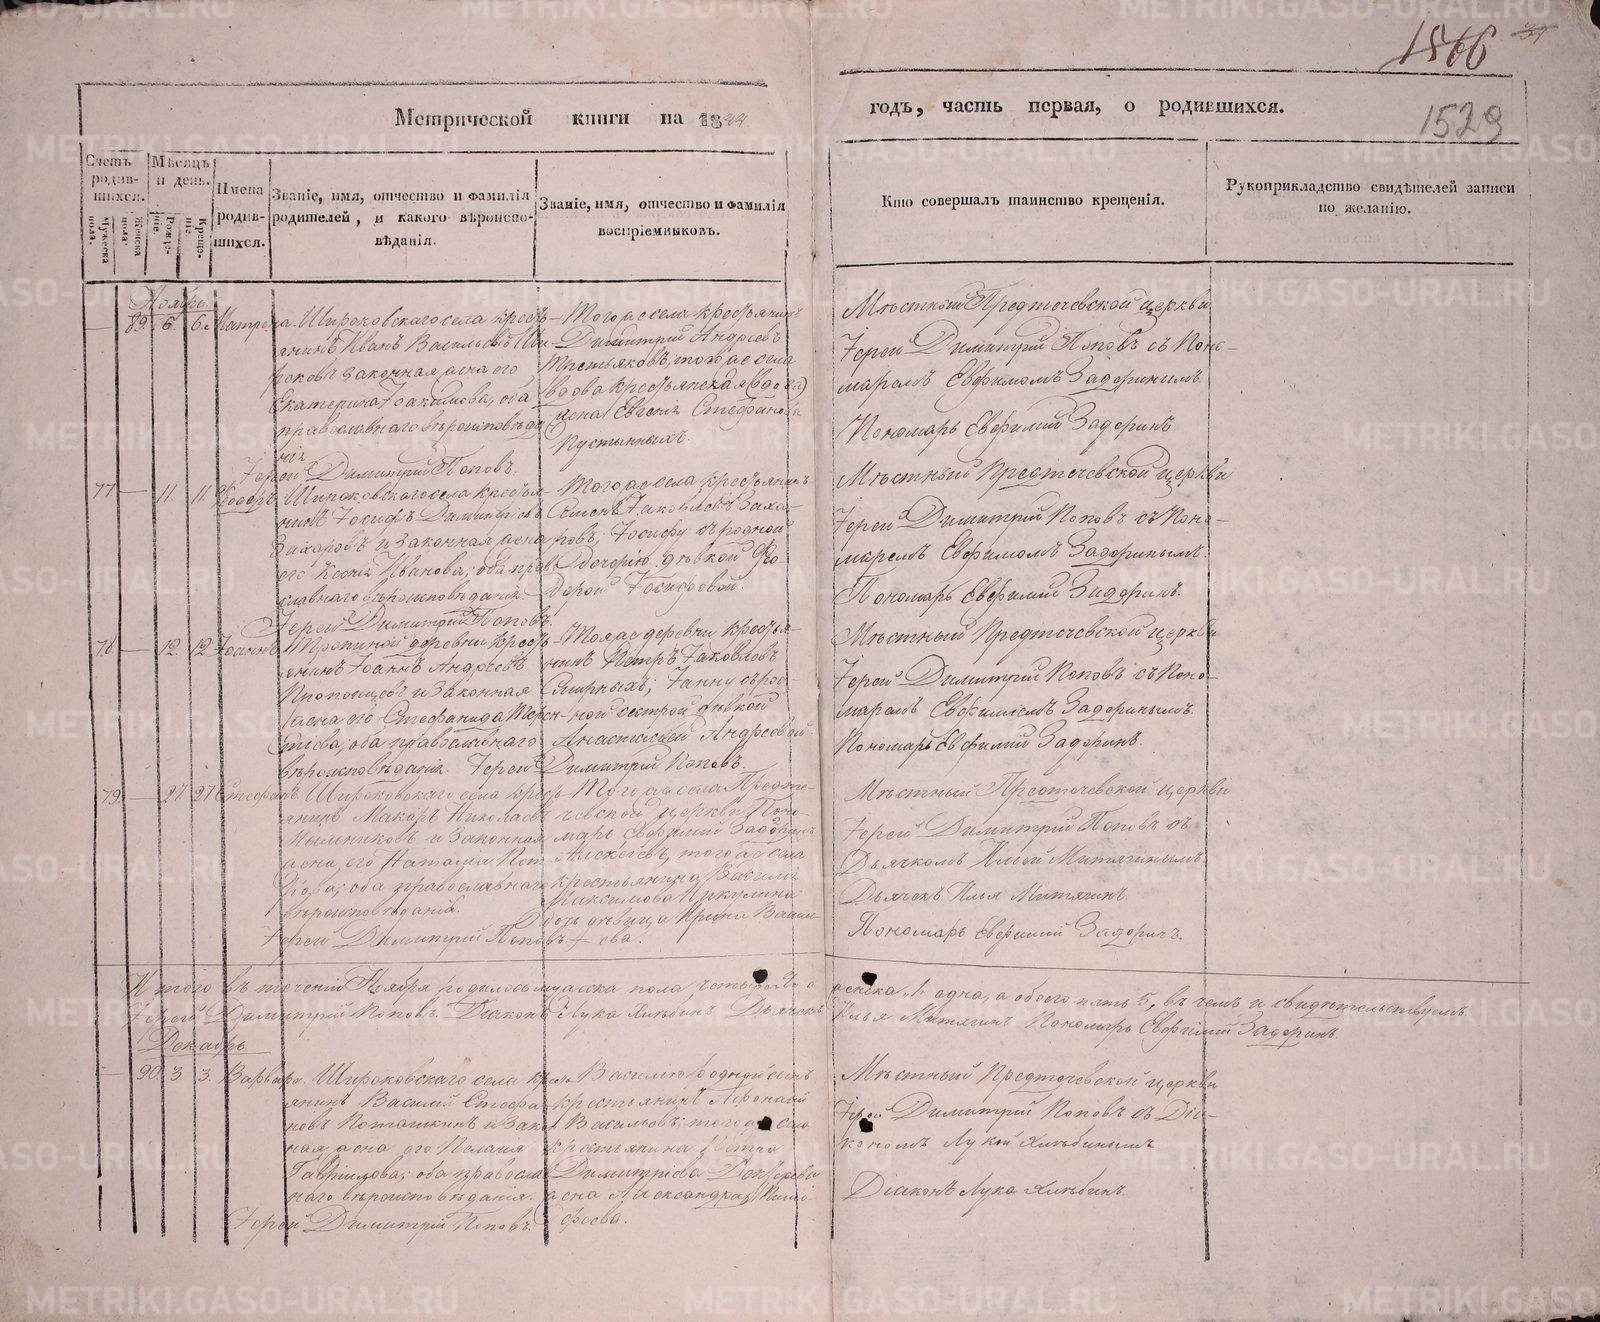 1529
Метрической книги на 1844 годъ, часть первая, о родившихся.
Счетъ родив-
шихся.
мужеска пола.
Женска пола.
Мѣсяцъ и день.
Рожде-
ніе.
Креще-
ніе.
Имена
родив-
шихся.
Званіе, имя, отчество и фамилія
родителей, и какого вѣроиспо-
вѣданія.
Званіе, имя, отчество и фамилія
воспріемниковъ.
Кто совершалъ таинство крещенія.
Рукоприкладство свидѣтелей записи
по желанію.
Ноябрь.
89. 6 6. Матрена
Широковскаго села кресть-
янинъ Иванъ Васильевъ Ши-
роковъ законная жена его
Екатерина Іоакимова, оба
православнаго вѣроисповѣда
нія
Іерей Димитрій Поповъ.
Того же села крестьянинъ
Димитрій Андреевъ
Третьяковъ, того же села
вдова крестьянская
жена Евгенія Стефанова
Пустынныхъ.
Мѣстный Предтечевской церкви
Іерей Димитрій Поповъ съ Поно-
маремъ Евфимомъ Задоринымъ.
Пономарь Евфимій Задоринъ
77 11. 11. Ѳеодоръ
Широковскаго села крестья-
нинъ Іосифъ Димитріевъ
Захаровъ и законная жена
его Ксенія Иванова, оба право
славнаго вѣроисповѣданія.
Іерей Димитрій Поповъ.
Того же села крестьянинъ
Семенъ Яковлевъ Заха-
ровъ, Іосифу съ родной
дочерію дѣвкой Ѳео-
дорой Іосифовой.
Мѣстный Предтечевской церкви
Іерей Димитрій Поповъ съ Поно-
маремъ Евфимомъ Задоринымъ.
Пономарь Евфимій Задоринъ.
78 12. 12 Іоаннъ
деревни кресть-
янинъ Іоаннъ Андреевъ
и законная
жена его Стефанида Терен-
тіева, оба православнаго
вѣроисповѣданія. Іерей Димитрій Поповъ.
Тояже деревни крестья-
нинъ Петръ Яковлевъ
Смирныхъ, съ род-
ной сестрой дѣвкой
Анастасіей Андреевой
Мѣстный Предтечевской церкви
Іерей Димитрій Поповъ съ Поно-
маремъ Евфиміемъ Задоринымъ.
Пономарь Евфимій Задоринъ.
79. 27 27 Стефанъ
Широковскаго села кресть-
янинъ Макаръ Николаевъ
Мыльниковъ и законная
жена его Наталія
оба православнаго
вѣроисповѣданія.
Іерей Димитрій Поповъ
Того же села Предте-
чевской церкви Поно-
марь Евфимій Задоринъ
Алексѣевъ, того же села
крестьянина Василія
Максимова Никулина
дочь дѣвица Ирина Васи-
ева.
Мѣстный Предтечевской церкви
Іерей Димитрій Поповъ съ
Дьячкомъ Ильей Митягинымъ.
Дьячекъ Илья Митягинъ.
Пономарь Евфимій Задоринъ.
Итого въ теченіи Ноября родилось мужеска пола четыре 4, женска 1 одна, а обоего пять 5, въ чемъ и свидѣтельствуемъ
Іерей Димитрій Поповъ. Діаконъ Лука Хлѣбинъ Дьячекъ Илья Митягинъ Пономарь Евфимій Задоринъ
Декабрь
90 3 3. Варвара
Широковскаго села крест-
янинъ Василій Стефа-
новъ Поташкинъ и закон
ная жена его Пелагія
Гавриилова, оба православ
наго вѣроисповѣданія.
Іерей Димитрій Поповъ.
Василію родной сынъ
крестьянинъ Афонасій
Васильевъ; того же села
крестьянина Петра
Димитріева
жена Александра Тимо-
феева.
Мѣстный Предтечевской церкви
Іерей Димитрій Поповъ съ Діа-
кономъ Лукой Хлѣбинымъ
Діаконъ Лука Хлѣбинъ.
METRIKI.GASO-URAL.RU